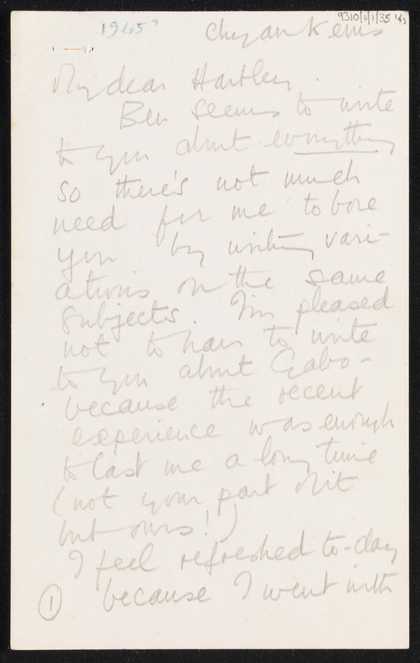 9310/1/1/35 1/3
1945?
Chy an Kerris
My dear Hartley.
Ben seems to write
to you about everything
so there's not much
need for me to bore
you by writing vari-
ations on the same
subjects. I'm pleased
not to have to write
to you about Gabo -
because the recent
experience was enough
to last me a long time
(not your part of it
but ours!)
I feel refreshed to-day
because I went with
1